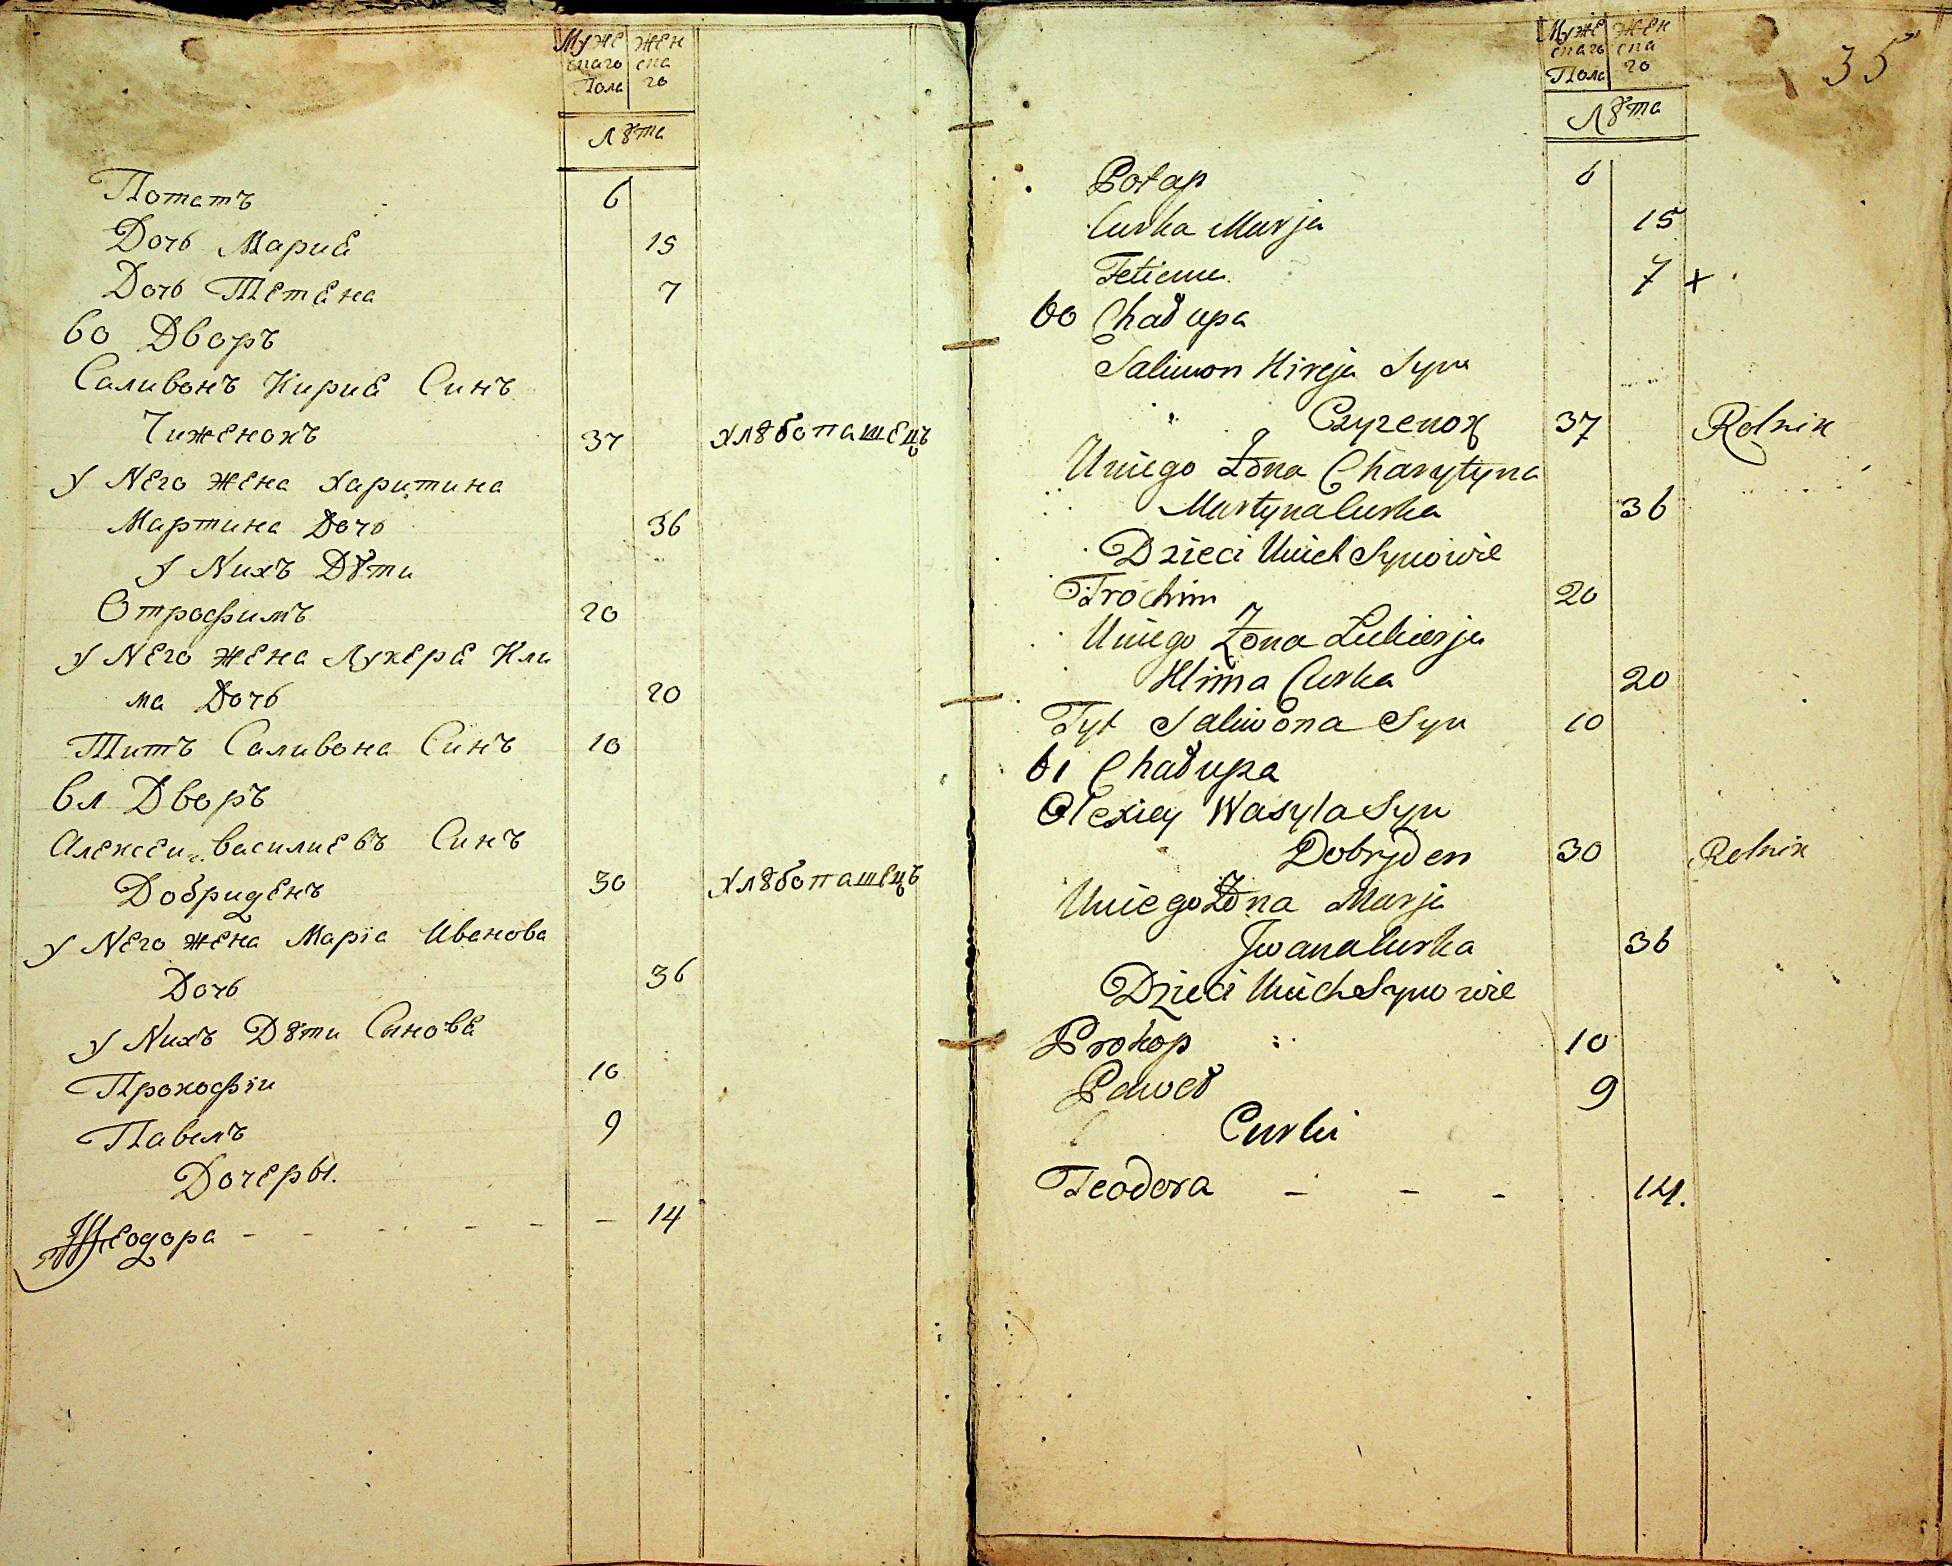 Муже Жен
скаго ска
Пола го
Лѣта
Потапъ 6
Дочь Мариа 15
Дочь Тетана 7
60 Дворъ
Саливонъ Кириа Синъ
Чиженокъ 37 хлѣбопашецъ
у Него жена харитина
Мартина Дочь 36
у Нихъ Дѣти
Отрофимъ 20
у Него жена Лукера Кли
ма Дочь 20
Титъ Саливона Синъ 10
61 Дворъ
Алексеи василиевъ Синъ
Добриденъ 30 хлѣбопашецъ
у Него жена Маріа Иванова
Дочь 36
у Нихъ Дѣти Синовѣ
Прокофіи 10
Павелъ 9
Дочеры.
Теодора - - - - - - 14
35
Муже Жен
скаго ска
Пола го
Лѣта
Potap 6
Curka Marja 15
Teticna 7 +
60 Chałupa
Saliwon Kireja Syn
Czyżenok 37 Rolnik
Uniego Żona Charytyna
Martyna Curka 36
Dzieci Unich Synowie
Trochim 20
Uniego Żona Lukierja
Klima Curka 20
Tyt Saliwona Syn 10
61 Chałupa
Olexiey Wasyla Syn
Dobryden 30 Rolnik
Uniego Żona Marja
Jwana Curka 36
Dzieci Unich Synowie
Prokop 10
Paweł 9
Curki
Teodora - - - 14.